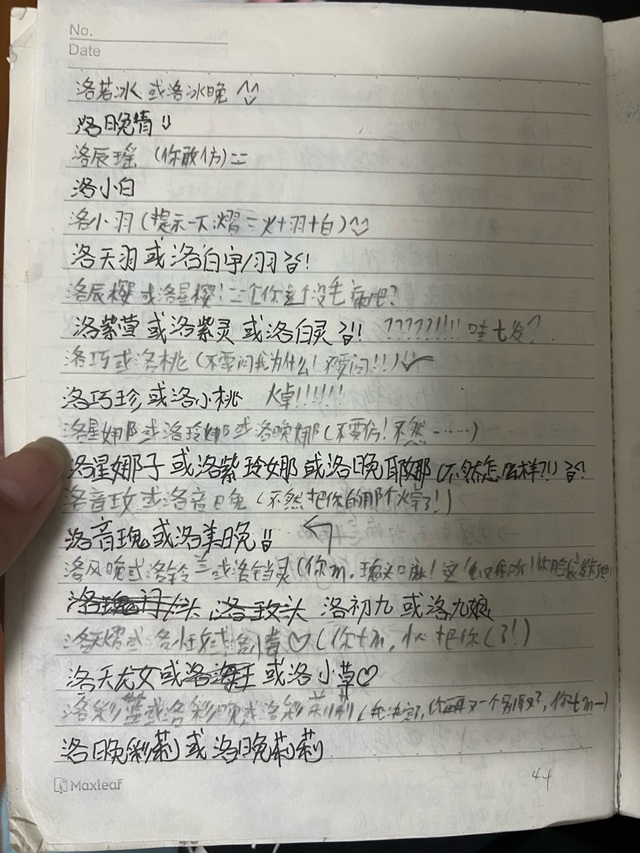 No.
Date
洛若冰 或洛冰晚 ^^
洛晚情
洛辰瑶 (你敢仿)二
洛小白
洛小羽 (提示一下 熠=火+羽+白) ^^
洛天羽或洛白宇/羽 !
洛辰樱 或洛星樱! 二个你 没毛病吧?
洛紫萱 或洛紫灵 或洛白灵 !! ??????!!!! 哇七发?
洛巧或洛桃 (不要问我为什么! 不要问!!)
洛巧珍 或洛小桃 焯!!!!!!
洛星娜 或洛玲娜 或洛晚娜 (不要仿! 不然……)
洛星娜子 或洛紫玲娜 或洛晚耶娜 (不然怎么样?!) !
洛音玫 或洛音 (不然把你的那个 了!)
洛音瑰或洛美晚
洛风晚或洛铃兰或洛铛灵 (你
洛初九 或洛九娘
♡ (你 把你 了!)
洛天尤女或 或洛小草♡
洛彩蓝或洛彩晚或洛彩莉莉 (我决定了,
洛晚彩莉 或洛晚莉莉
Maxleaf
44